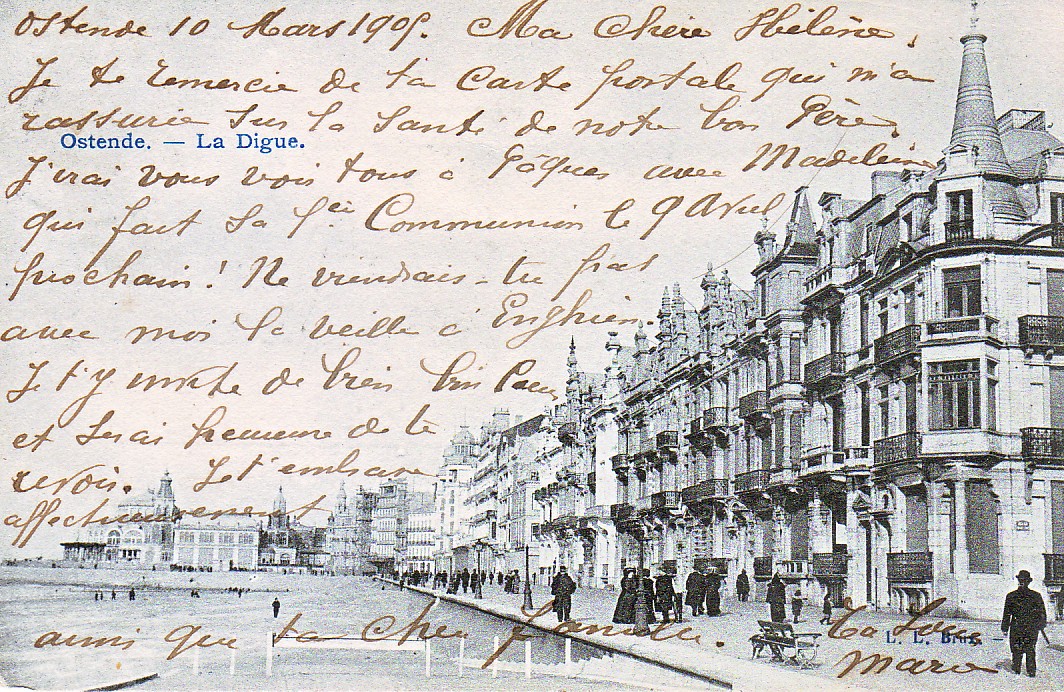 Ostende 10 Mars 1905. Ma Chère Hélène,
Je te remercie de ta Carte postale qui m'a
rassurée sur la Santé de notre bon Père.
Ostende. — La Digue.
J'irai vous voir tous à Pâques avec Madeleine
qui fait sa 1ère Communion le 9 Avril
prochain! Ne viendrais-tu pas
avec moi la veille à Enghien.
Je t'y invite de bien bon Coeur
et serai heureuse de te
revoir. Je t'embrasse
affectueusement
ainsi que ta chère famille. Ta Soeur
L. L. Brux.
Marie